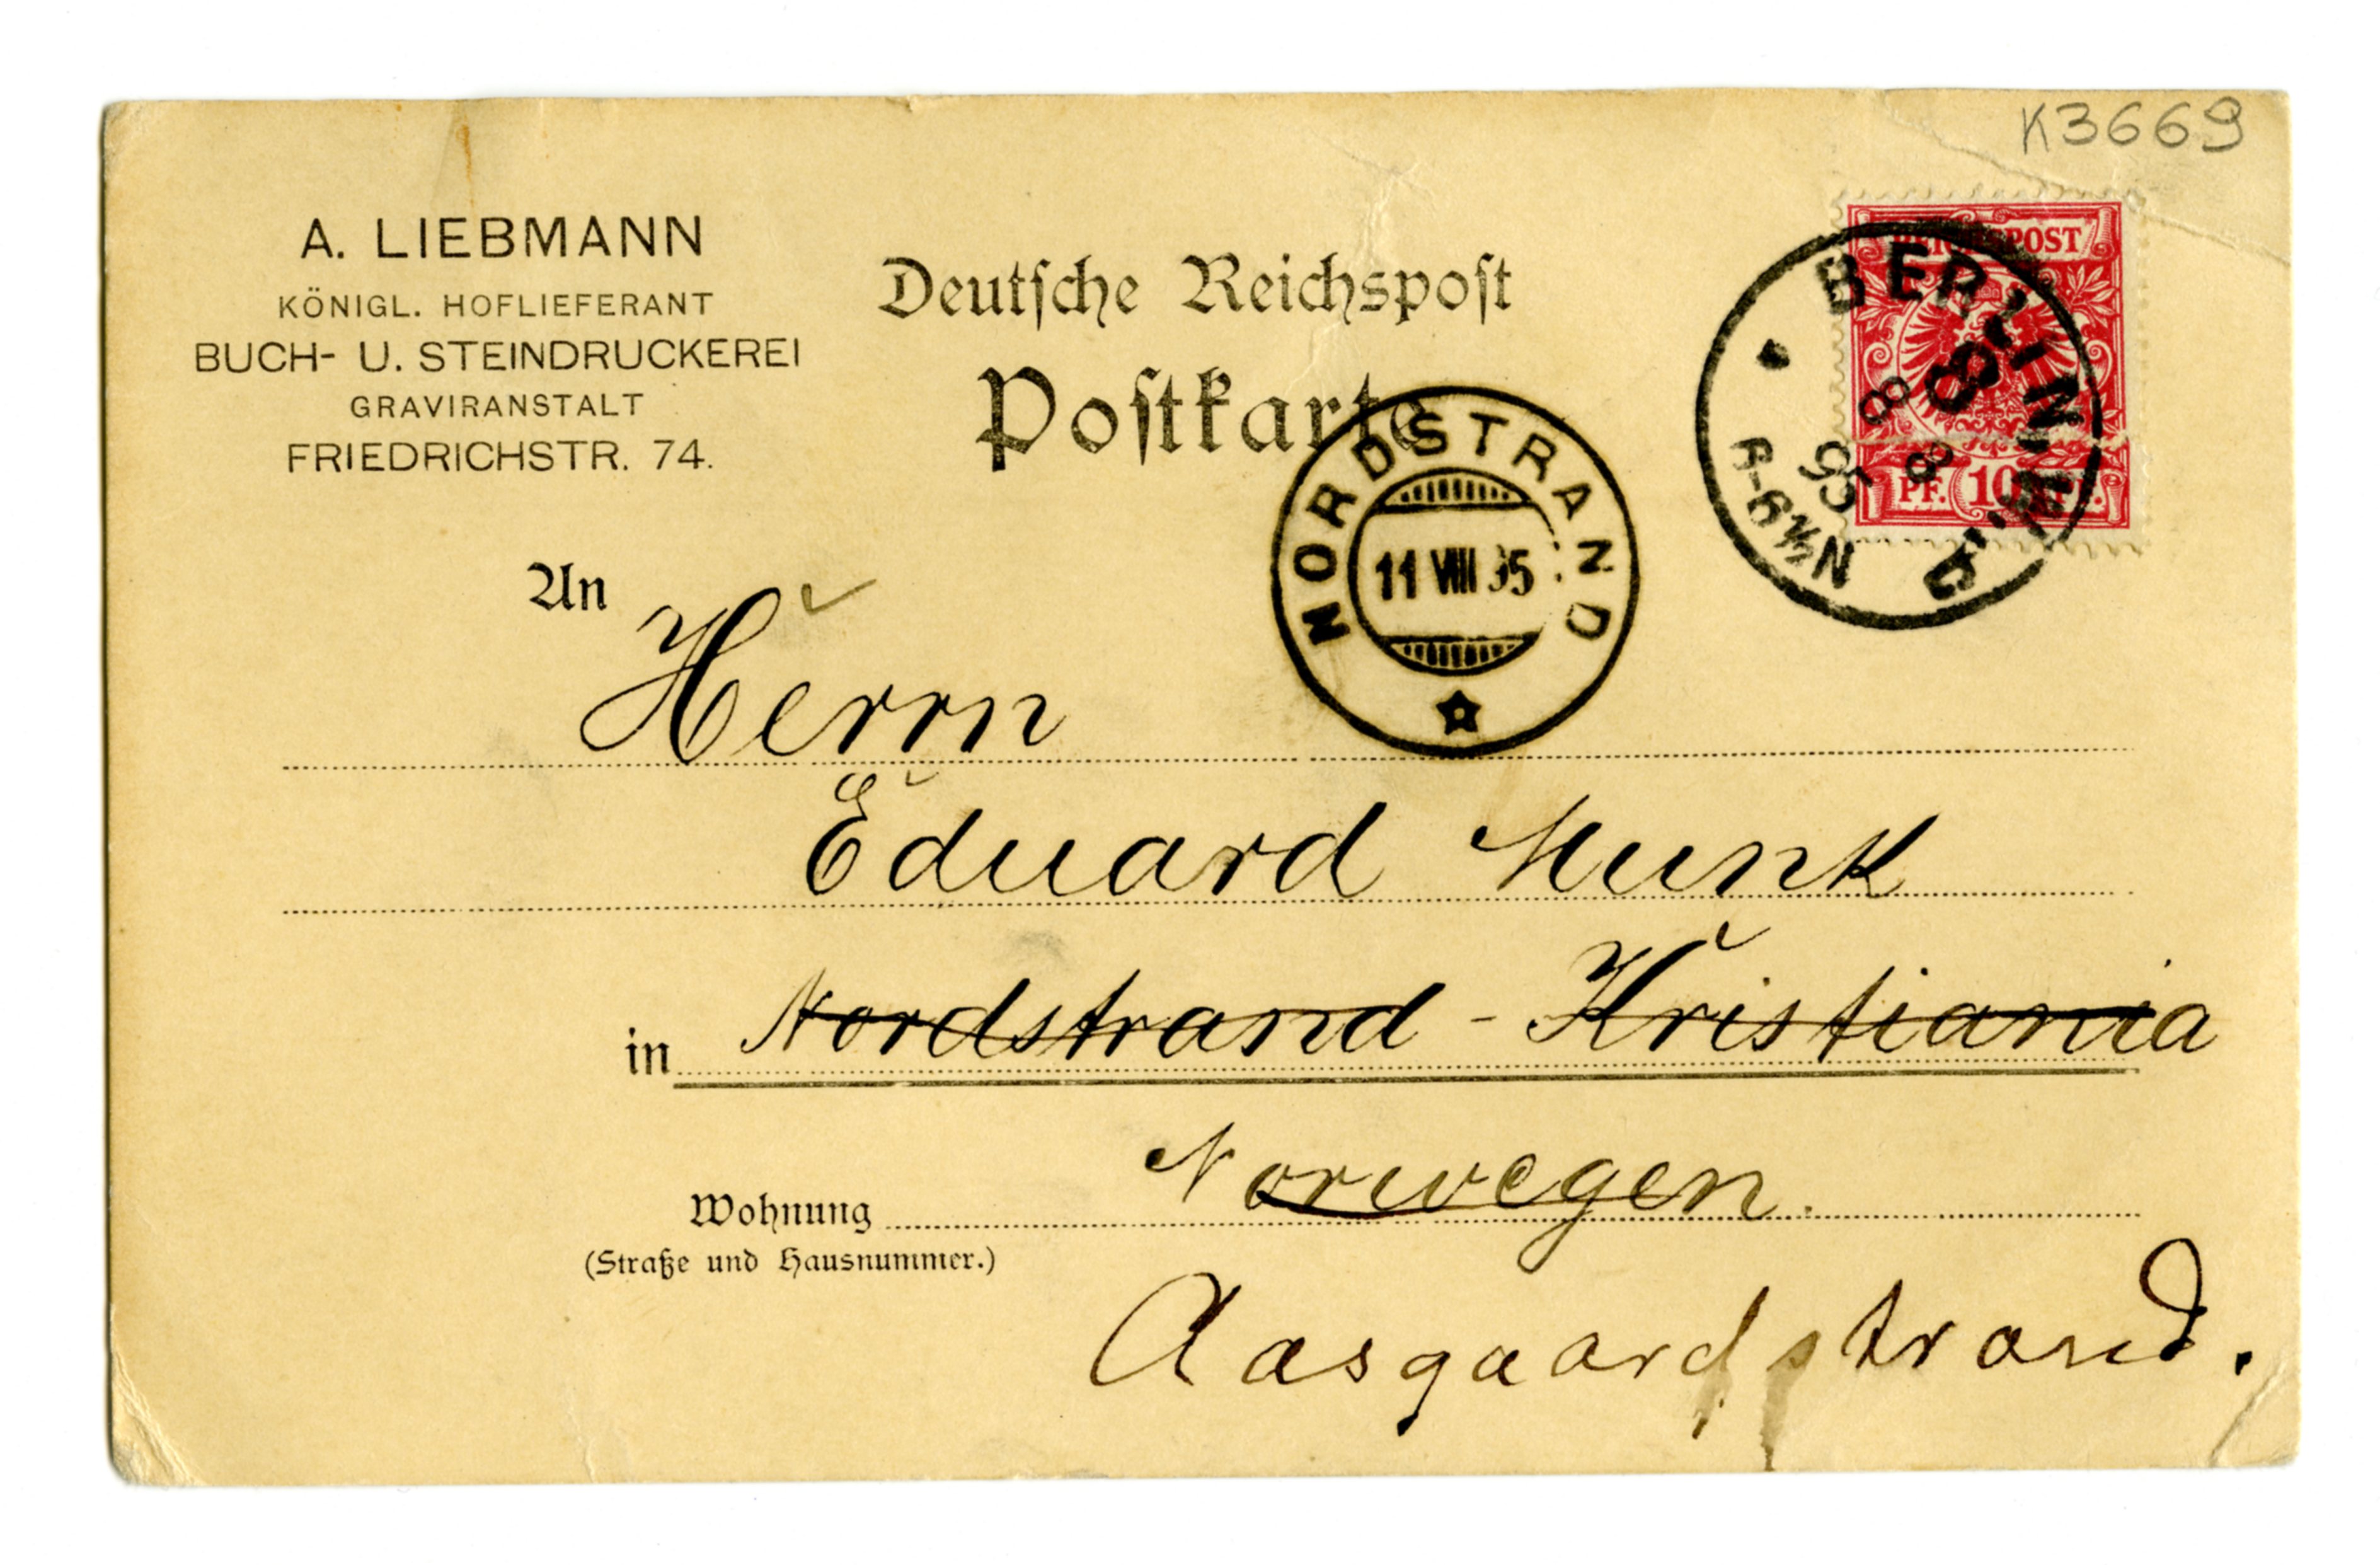 K3669
A. LIEBMANN
KÖNIGL. HOFLIEFERANT
BUCH- U. STEINDRUCKEREI
GRAVIRANSTALT
FRIEDRICHSTR. 74.
Deutsche Reichspost
Postkarte
REICHSPOST
PF. 10 PF.
BERLIN, W.
8 8
95
8
NORDSTRAND
11 VIII 95
An
Herrn
Eduard Munk
in Nordstrand - Kristiania
Norwegen.
Wohnung
(Straße und Hausnummer.)
Aasgaardstrand.